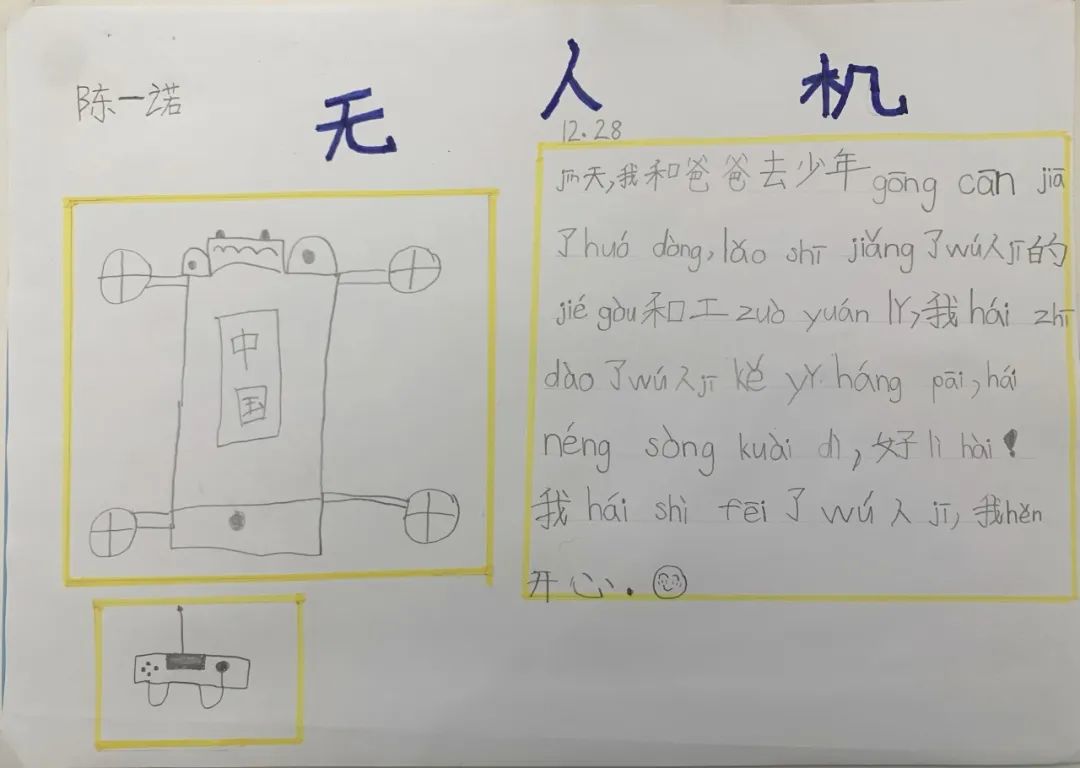 陈一诺
无人机
12.28
jīn天,我和爸爸去少年gōng cān jiā
了huó dòng,lǎo shī jiǎng了wú人jī的
jié gòu和工zuò yuán lǐ,我hái zhī
dào了wú人jī kě yǐ háng pāi,hái
néng sòng kuài dì,好lì hài!
我hái shì fēi了wú人jī,我hěn
开心.
中
国